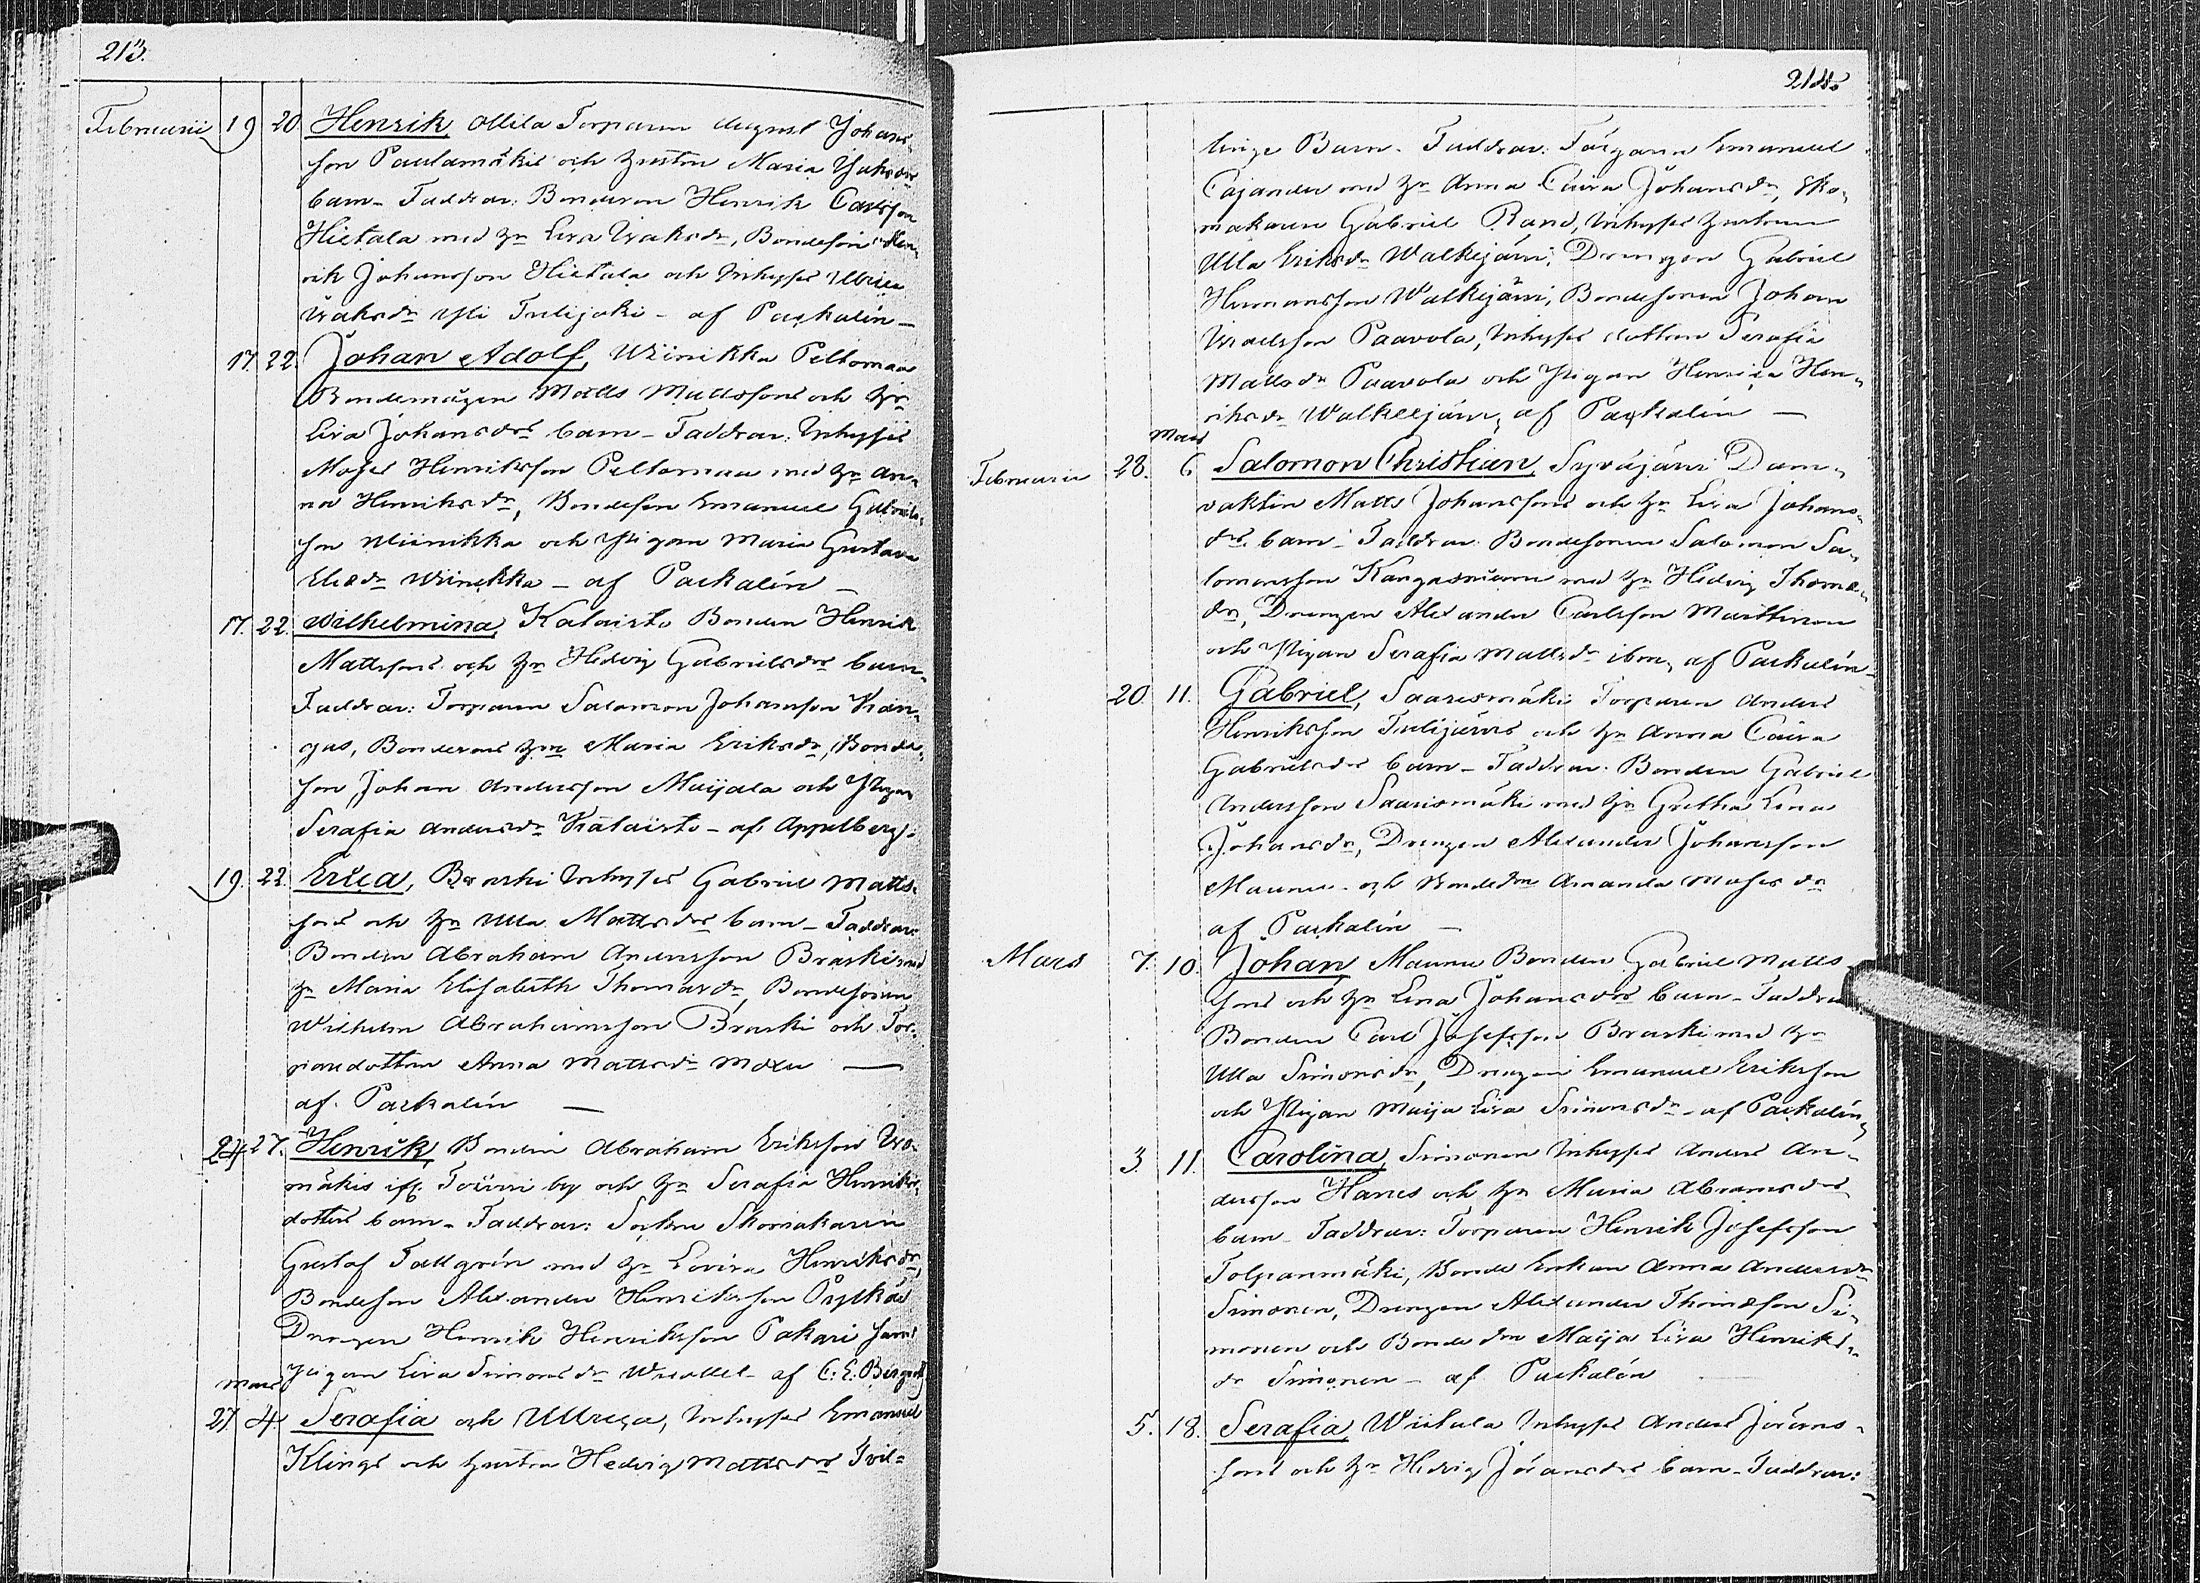 213.
Februarii 19 20 Henrik Ollila Torparen August Johans-
son Paulamäkis och hustrun Maria Isaksdrs
barn – Faddrar: Bonderson Henrik Carlsson
Hietala med hu Eva Isaksdr, Bondeson Hen-
rik Johansson Hietala och Inhyses Ulrica
Isaksdr Yli Tulijoki – af Packalén –
17. 22. Johan Adolf, Wiinikka Peltomaa
Bondemågen Matts Mattssons och hus
Eva Johansdrs barn – Faddrar: Inhyses
Moses Henriksson Peltomaa med hu An-
na Henriksdr, Bondeson Emanuel Gabriels-
son Wiinikka och Pigan Maria Gustava
Eliedr Wiinikka – af Packalén –
17. 22. Wilhelmina, Kataisto Bonden Henrik
Mattssons och hu Hedvig Gabrielsdrs barn –
Faddrar: Torparen Salomon Johansson Kan-
gas, Bondens hu Maria Eriksdr, Bonde-
son Johan Andersson Maijala och Pigan
Serafia Andersdr Kataisto – af Appelberg.
19. 22 Erica, Braski Inhyses Gabriel Matts-
sons och hu Ulla Mattsdrs barn – Faddrar:
Bonden Abraham Andersson Braski med
hu Maria Elisabeth Thomasdr, Bondesonen
Wilhelm Abrahamsson Braski och Tor-
paredottren Anna Mattsdr
af Packalén –
24 27. Henrik, Bonden Abraham Eriksson
mäkis ifr. by och hu Serafia Henriks-
dotters barn – Faddrar: Sockne Skomakaren
Gustaf Tallgrén med hu Lovisa Henriksdr,
Bondeson Alexander Henriksson Pylkäs
Drengen Henrik Henriksson Pakari samt
pigan Eva Simonsdr – af C. E. Bergroth
Mars
27. 4. Serafia och Ullrica, Inhyses Emanuel
Klings och hustrun Hedvig Mattsdrs Tvil-
214.
linge Barn – Faddrar: Färgaren Emanuel
Cajander med hu Anna Caisa Johansdr, Sko-
makaren Gabriel Rand, Inhyses hustrun
Ulla Eriksdr Walkejärvi, Drengen Gabriel
Hermansson Walkejärvi, Bondesonen Johan
Israelsson Paavola, Inhyses dottren Serafia
Mattsdr Paavola och Pigan Henrica Hen-
riksdr Walkeejärvi, af Packalén –
Mars
Februarii 28. 6 Salomon Christian, Syväjärvi Dam-
vakten Matts Johanssons och hu Eva Johans-
drs barn – Faddrar: Bondesonen Salomon Sa-
lomonsson Kangasniemi med hu Hedvig Thoma-
dr, Drengen Alexander Carlsson Marttinen
och Pigan Serafia Mattsdr ibm, af Packalén –
20. 11. Gabriel, Saarismäki Torparen Anders
Henriksson Tulijärvis och hu Anna Caisa
Gabrielsdrs barn – Faddrar: Bonden Gabriel
Andersson Saarismäki med hu Gretha Lena
Johansdr, Drengen Alexander Johansson
Maunu och Bondedr Amanda Mosesdr
af Packalén –
Mars 7. 10. Johan, Maunu Bonden Gabriel Matts-
sons och hu Lena Johansdrs barn – Faddrar
Bonden Carl Josefsson Braski med hu
Ulla Simonsdr, Drengen Emanuel Eriksson
och Pigan Maija Lisa Simonsdr – af Packalén,
3. 11. Carolina, Simonen Inhyses Anders An-
dersson Hanes och hu Maria Abramsdrs
barn – Faddrar: Torparen Henrik Josefsson
Tolpanmäki, Bonde Enkan Anna Andersdr
Simonen, Drengen Alexander Thomasson Si-
monen och Bonde dr Maija Lisa Henriks-
dr Simonen – af Packalén
5. 18. Serafia, Wiitala Inhyses Anders Jörans-
sons och hu Hedvig Jöransdrs barn – Faddrar: